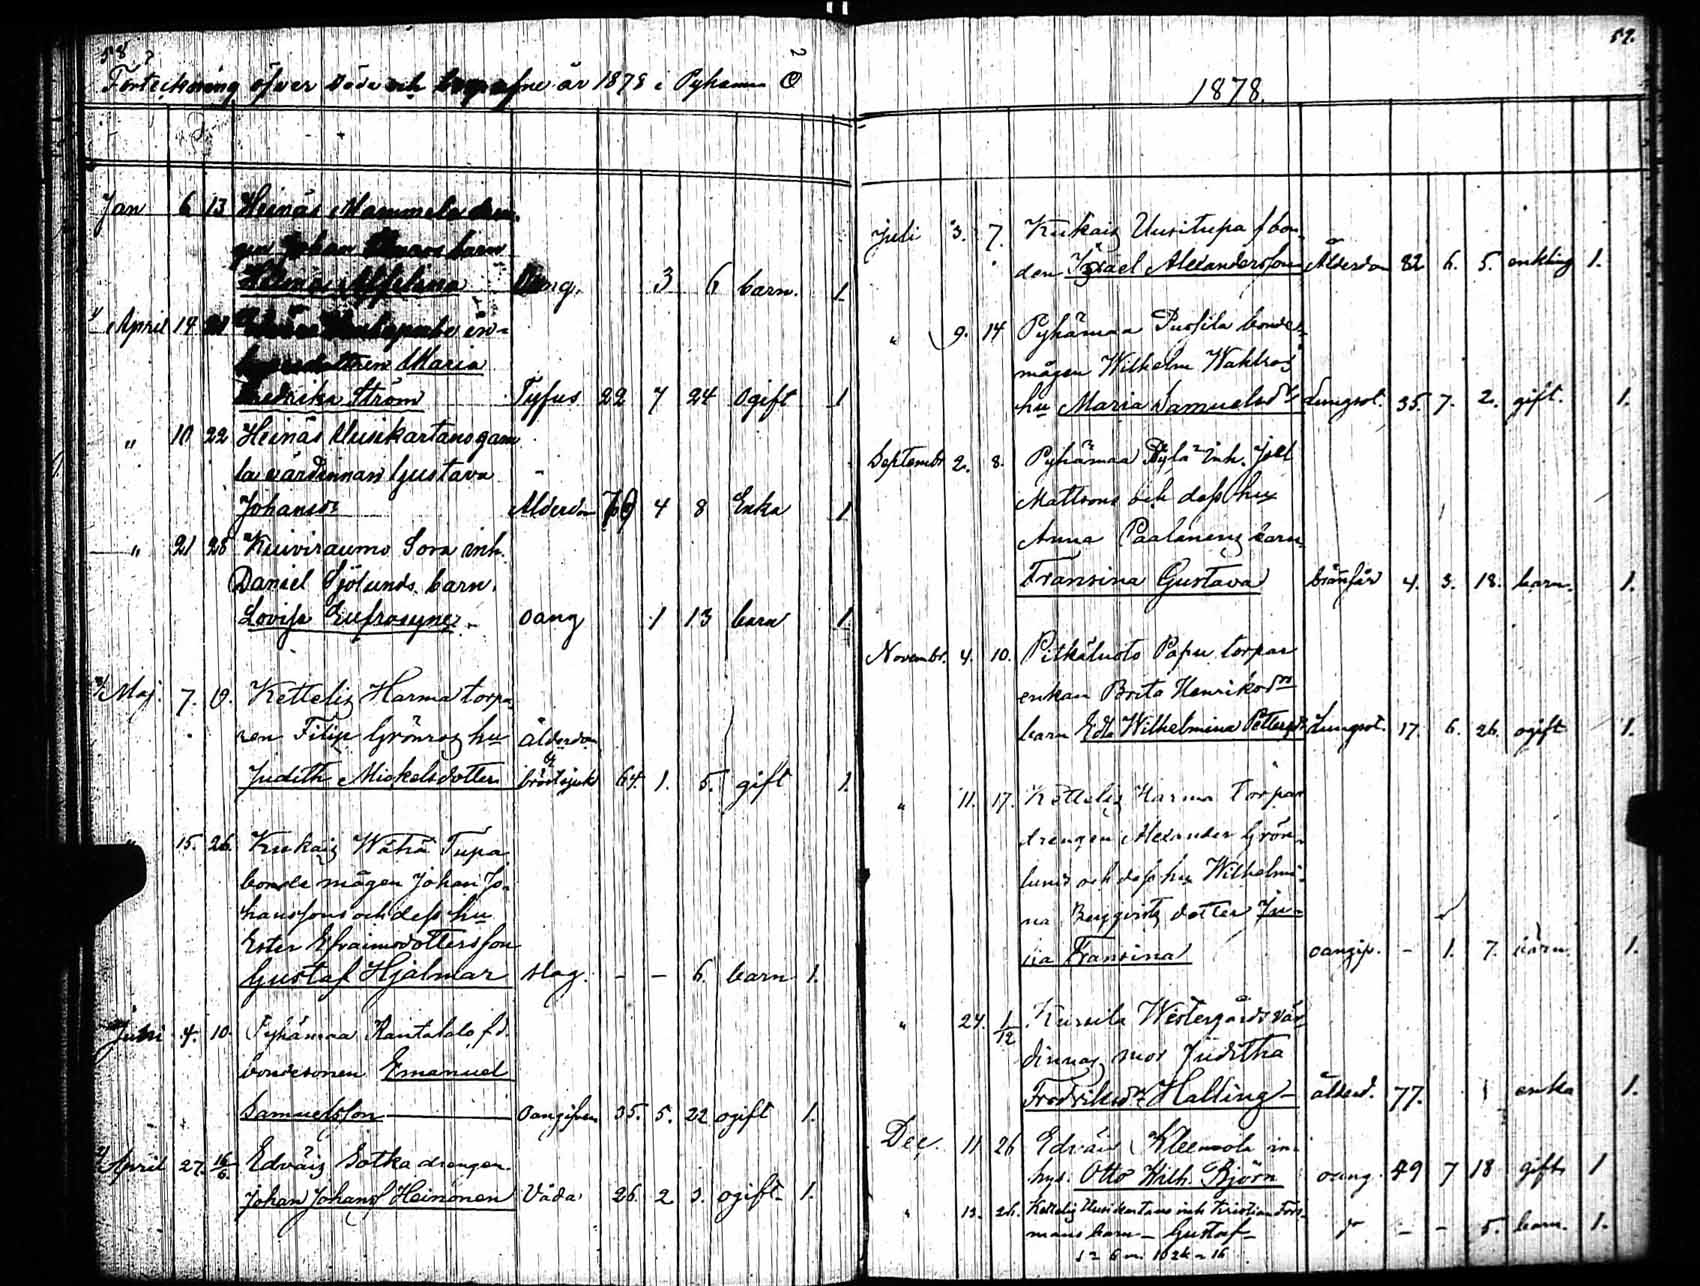 58
Förteckning öfver döde och begrafne år 1878 i Pyhämaa
Jan 6 13 Heinäs Mammela dren-
gen Johan barn
Helena oang. 3 6 barn. 1
April 14 in-
Maria
Fredrika Ström Tyfus 22 7 24 Ogift 1
" 10 22 Heinäs Uusikartano gam
la värdinnan Gustava
Johansdr Ålderdom 4 8 Enka 1
" 21 28 Kuiviraumo Sora inh.
Daniel Sjölunds barn.
Lovisa Eufrosyne oang 1 13 barn 1
Maj. 7. Kettelis Harma torpa
ren Filip Grönros hu Ålderdom
Judith Mickelsdotter bröstsjuk 64. 1. 5. gift 1.
" 15. 26. Kukais Wähä Tupa
bonde mågen Johan Jo-
hanssons och dess hu
Ester Efraimsdotters son
Gustaf Hjalmar slag. - - 6. barn 1.
Juni 4. 10 Pyhämaa Rantatalo f.d.
bondesonen Emanuel
Samuelsson oangifven 35. 5. 22 ogift 1.
April 27. 16/6 Edväis Sotka drengen
Johan Johans Heinonen Våda 26. 2 3. ogift 1.
59.
1878.
Juli 3. 7. Kukais Uusitupa f bon
den Israel Alexandersson Ålderdom 82 6. 5. enkling 1.
" 9. 14 Pyhämaa bonde-
mågen Wilhelm
hu Maria Samuelsdr Lungsot. 35. 7. 2. gift. 1.
Septembr 2. 8. Pyhämaa inh. Joel
Mattsons och dess hu
Anna Paalanens barn
Fransina Gustava 4. 3. 18. barn. 1.
Novembr. 4. 10. Pitkäluoto Papu torpar
enkan Brita Henriksdrs
barn Edla Wilhelmina Pettersdr Lungsot. 17. 6. 26. ogift 1.
" 11. 17. Kettelis Harma Torpar
drengen Alexander Grön-
lund och dess hu Wilhelmi-
na Bergqvists dotter
Fransina oangif. - 1. 7. barn. 1.
" 24. 1/12 Kursila Westergårds vär
dinnas mor Juditha
Fredriksdr Halling ålderd. 77. enka 1.
Dec. 11 26 Edväis Kleemola in-
hys. Otto Wilh. Björn oang. 49 7 18 gift 1
" 13. 26. Kettelis Uusikartano inh Kristian Fors-
mans barn - Gustaf - - - 5. barn. 1.